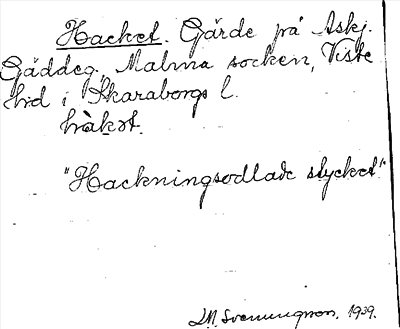 Hacket. Gärde på Askj.
Gäddeg. Malma socken, Viste
hd i Skaraborgs l.
hàkət.
"Hackningsodlade stycket"
Svenungsson. 1939.